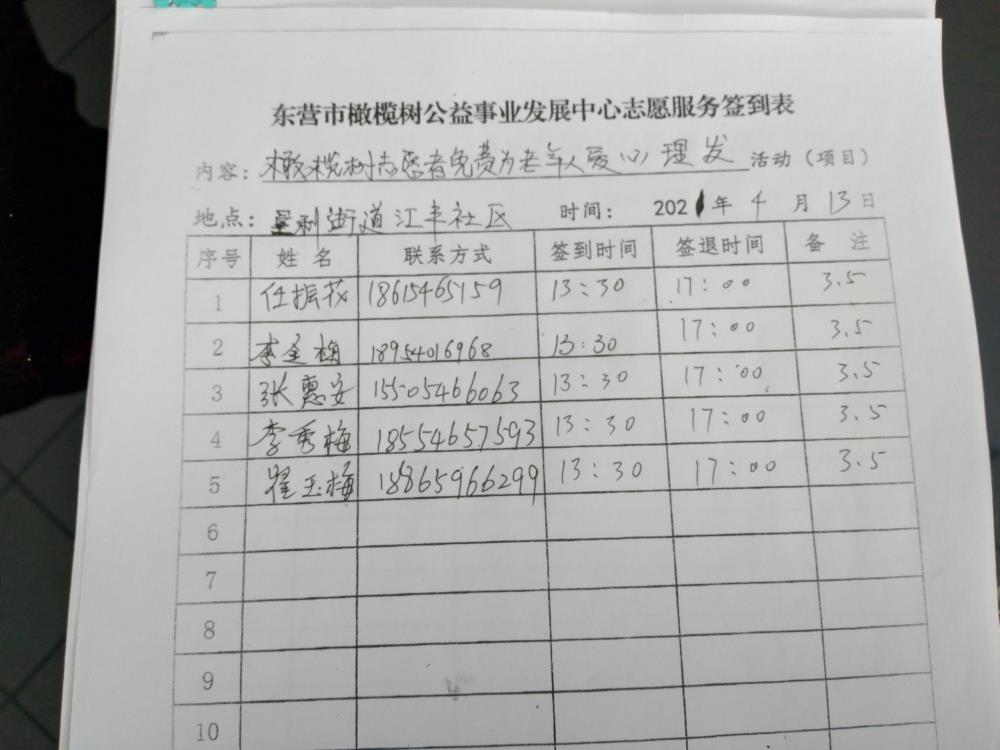 东营市橄榄树公益事业发展中心志愿服务签到表
内容：橄榄树志愿者免费为老年人爱心理发 活动（项目）
地点：垦利街道江丰社区 时间： 2021年 4 月 13日
序号 姓名 联系方式 签到时间 签退时间 备 注
1 任振花 18615465159 13:30 17:00 3.5
2 李金梅 18954016968 13:30 17:00 3.5
3 张惠安 15505466063 13:30 17:00 3.5
4 李秀梅 18554657593 13:30 17:00 3.5
5 翟玉梅 18865966299 13:30 17:00 3.5
6
7
8
9
10